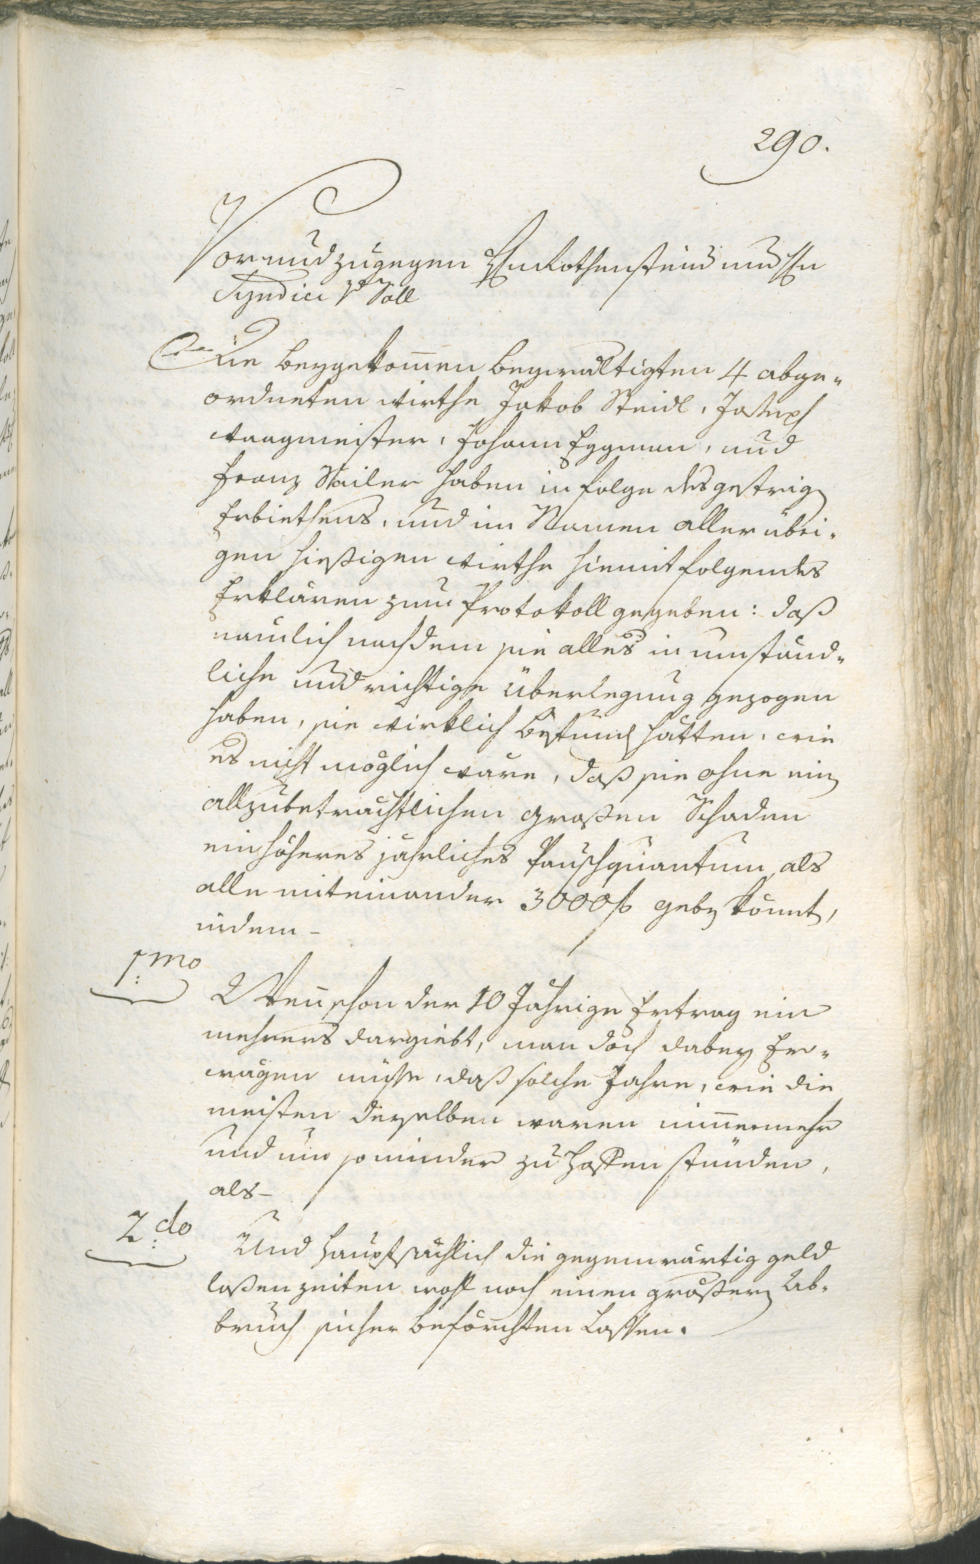 290.
Vor und zugegen Hn Rothensteins und Hn
Syndici Söll
Die beygekom̄en begwältigten 4 abge„
ordneten wirthe Jakob Steidl, Joseph
waagmeister, Johann Eggman, und
Franz Nailer haben in folge des gestrigen
Erbiethens, und im Namen aller übri„
gen hießigen wirthe hiemit folgendes
Erklären zum Protokoll gegeben: daß
namlich nachdem sie alles in umständ„
liche und richtige Überlegung gezogen
haben, sie wirklich befunden hätten, wie
es nicht möglich ware, daß sie ohne einen
allzubeträchtlichen großen Schaden
ein höheres jährliches Pauschquantum, als
alle miteinander 3000f geben könnten,
indem –
1:mo
Wen̄ schon der 10 Jährige Ertrag ein
mehrers dargiebt, man doch dabey Er„
wägen müsse, daß solche Jahre, wie die
meisten derselben waren nim̄ermehr
und um so minder zu hoffen stünden,
als –
2:do
Und hauptsächlich die gegenwärtig geld
loßen zeiten wohl noch einen größeren Ab„
bruch sicher beförchten Lassen.